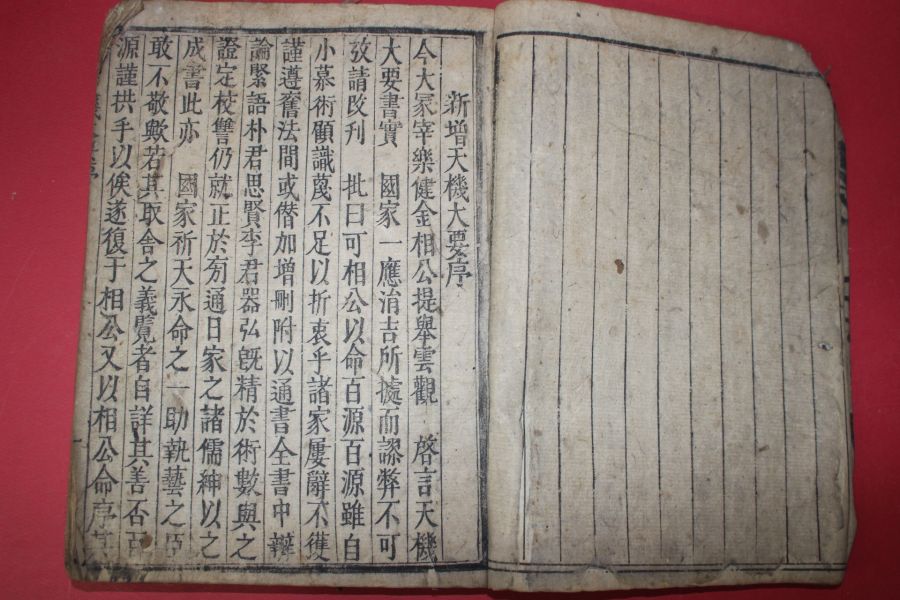 新增天機大要序
今大冢宰樂健金相公提舉雲觀　啓言天機
大要書實　國家一應涓吉所據而謬弊不可
攷請改刊　批曰可相公以命百源百源雖自
小慕術顧識蔑不足以折衷乎諸家屢辭不獲
謹遵舊法間或僭加增刪附以通書全書中辨
論緊語朴君思賢李君器弘旣精於術數與之
證定校讐仍就正於旁通日家之諸儒紳以之
成書此亦　國家祈天永命之一助執藝之臣
敢不敬歟若其取舍之義覽者自詳其善否百
源謹拱手以俟遂復于相公又以相公命序其